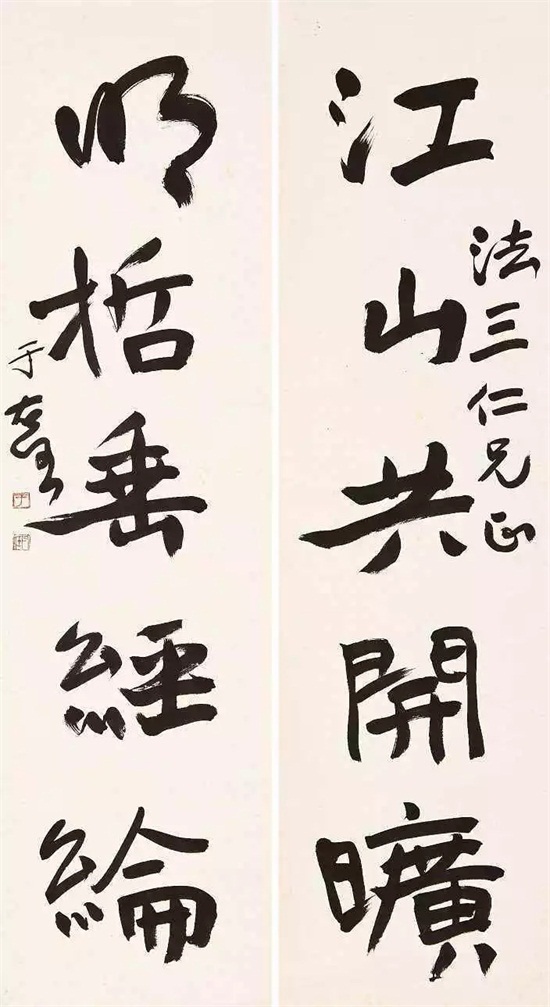 江山共開曠
法三仁兄正
明哲垂經綸
于右任